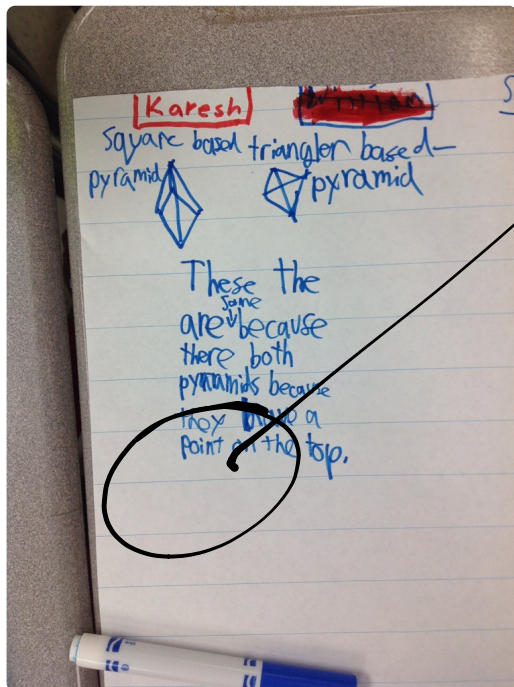 Karesh
Square based triangler based-
pyramid pyramid
These the
same
are because
there both
pyramids because
they have a
point on the top.
S